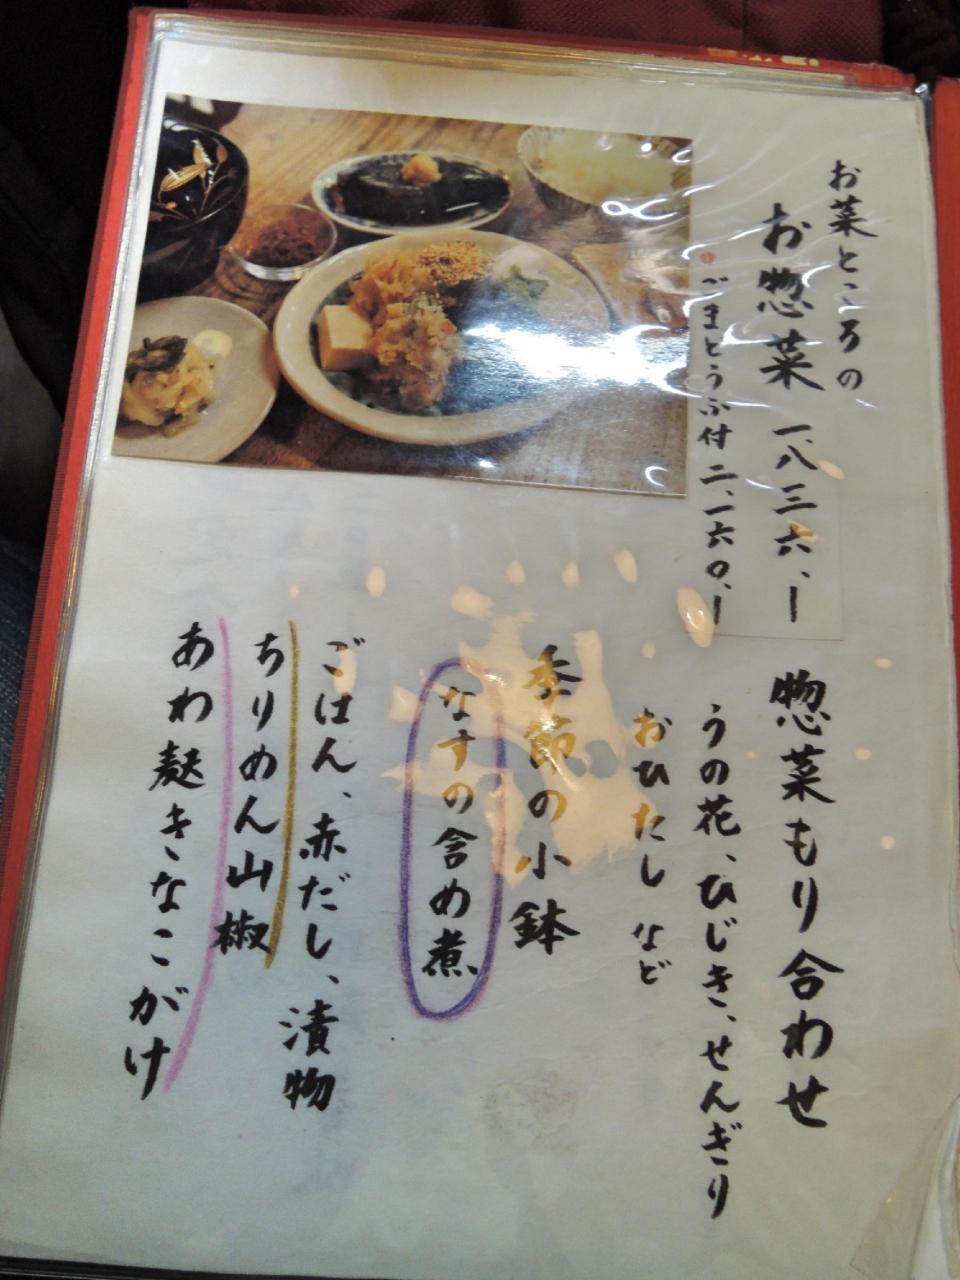 お菜ところの
お惣菜 一、八三六、ー
ごまとうふ付 二、一六〇、ー
惣菜もり合わせ
うの花、ひじき、せんぎり
おひたし など
季節の小鉢
なすの含め煮
ごはん、赤だし、漬物
ちりめん山椒
あわ麩きなこがけ